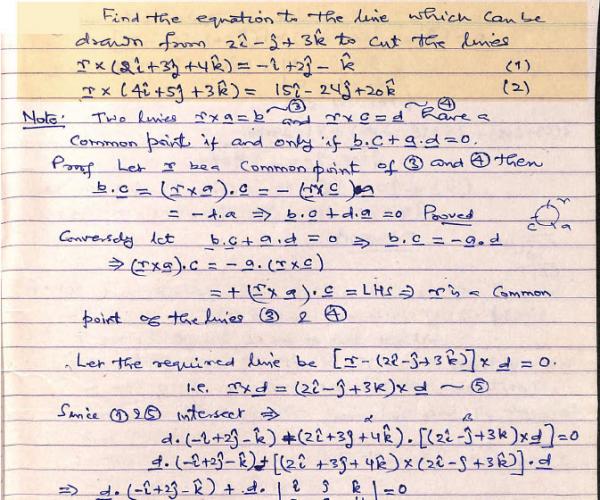 Find the equation to the line which can be
drawn from 2î - ĵ + 3k̂ to cut the lines
r × (2î + 3ĵ + 4k̂) = -î + 2ĵ - k̂ (1)
r × (4î + 5ĵ + 3k̂) = 15î - 24ĵ + 20k̂ (2)
Note: Two lines r × a = b ~ ③ and r × c = d ~ ④ have a
Common point if and only if b.c + a.d = 0.
Proof Let r be a Common point of ③ and ④ then
b.c = (r × a).c = - (r × c).a
= -d.a ⇒ b.c + d.a = 0 Proved
r c a
Conversely let b.c + a.d = 0 ⇒ b.c = -a.d
⇒ (r × a).c = -a.(r × c)
= + (r × a).c = LHS ⇒ r is a Common
point of the lines ③ & ④
Let the required line be [r - (2î - ĵ + 3k̂)] × d = 0.
i.e. r × d = (2î - ĵ + 3k̂) × d ~ ⑤
Since ① & ⑤ intersect ⇒
d.(-î + 2ĵ - k̂) + (2î + 3ĵ + 4k̂).[(2î - ĵ + 3k̂) × d] = 0
d.(-î + 2ĵ - k̂) + [(2î + 3ĵ + 4k̂) × (2î - ĵ + 3k̂)].d
⇒ d.(-î + 2ĵ - k̂) + d. | i j k | = 0